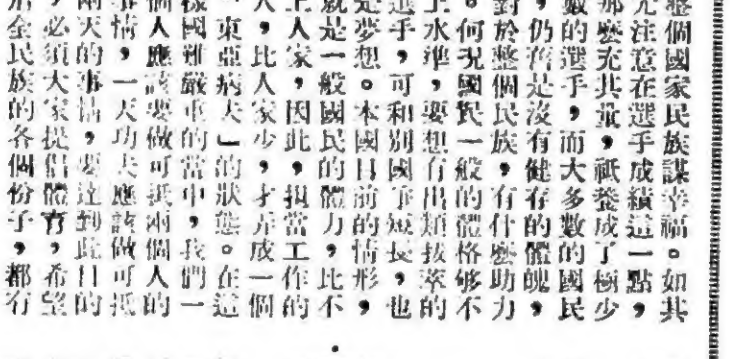 整個國家民族謀幸福。如其
光注意在選手成績這一點，
那麼充其量，祇養成了極少
數的選手，而大多數的國民
，仍舊是沒有健存的體魄，
對於整個民族，有什麼助力
。何況國民一般的體格够不
上水準，要想有出類拔萃的
選手，可和別國爭短長，也
是夢想。本國目前的情形，
就是一般國民的體力，比不
上人家，因此，担當工作的
人，比人家少，才弄成一個
「東亞病夫」的狀態。在這
樣國難嚴重的當中，我們一
個人應該要做可抵兩個人的
事情，一天功夫應該做可抵
兩天的事情，要達到此目的
，必須大家提倡體育，希望
全民族的各個份子，都有